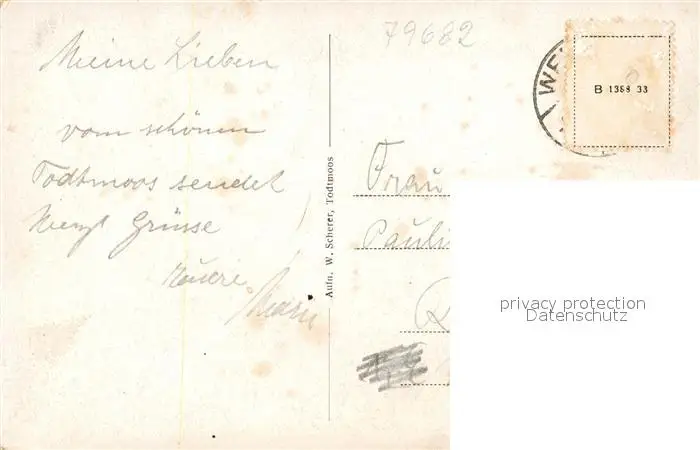 79682
Meine Lieben
vom schönen
Todtmoos sendet
Herzl Grüsse
Aufn. W. Scherer, Todtmoos
WE
B 1388 33
Frau
Pauli
privacy protection
Datenschutz